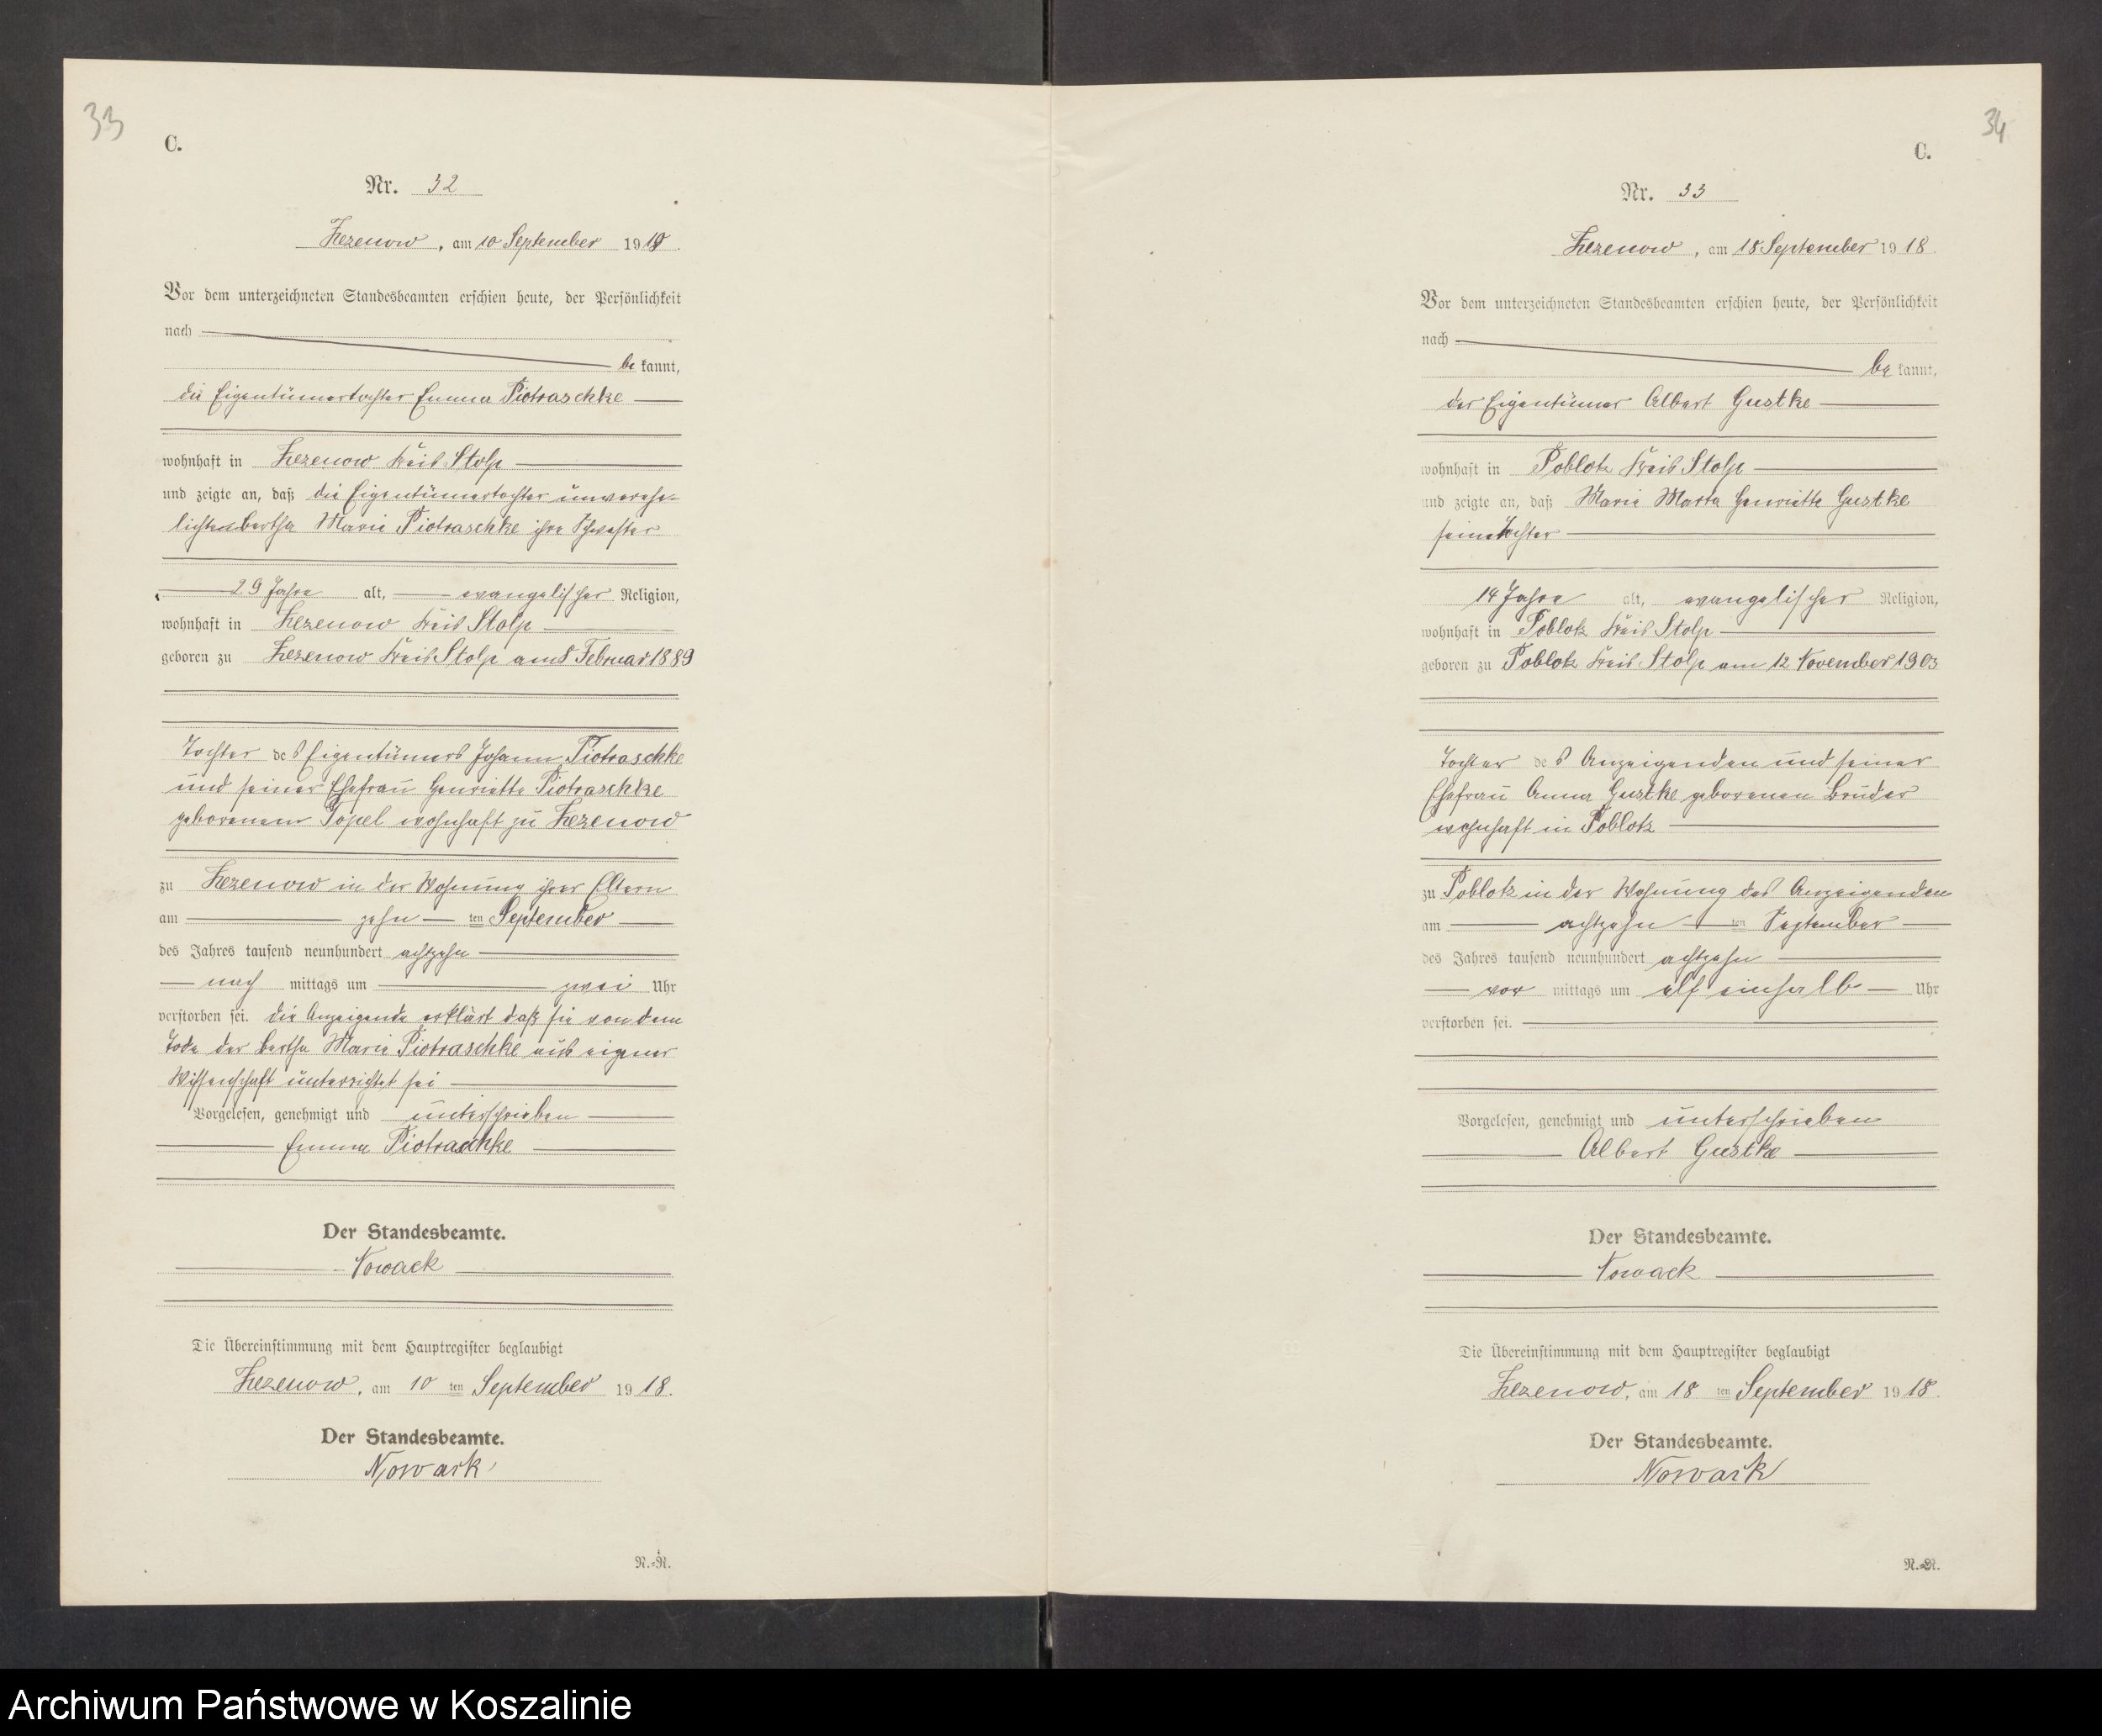 33
C.
Nr. 32
Zezenow, am 10 September 1918.
Vor dem unterzeichneten Standesbeamten erschien heute, der Persönlichkeit
nach
be kannt,
die Eigentümertochter Emma Piotraschke
wohnhaft in Zezenow Kreis Stolp
und zeigte an, daß die Eigentümertochter unverehe-
lichte Bertha Marie Piotraschke ihre Schwester
29 Jahre alt, evangelischer Religion,
wohnhaft in Zezenow Kreis Stolp
geboren zu Zezenow Kreis Stolp am 8 Februar 1889
Tochter des Eigentümers Johann Piotraschke
und seiner Ehefrau Henriette Piotraschke
geborenen Topel wohnhaft zu Zezenow
zu Zezenow in der Wohnung ihrer Eltern
am zehn ten September
des Jahres tausend neunhundert achtzehn
nach mittags um zwei Uhr
verstorben sei. die Anzeigende erklärt daß sie von dem
Tode der Bertha Marie Piotraschke aus eigner
Wissenschaft unterrichtet sei
Vorgelesen, genehmigt und unterschrieben
Emma Piotraschke
Der Standesbeamte.
Nowack
Die Übereinstimmung mit dem Hauptregister beglaubigt
Zezenow, am 10 ten September 1918.
Der Standesbeamte.
Nowack
N.=R.
34
C.
Nr. 33
Zezenow, am 18 September 1918.
Vor dem unterzeichneten Standesbeamten erschien heute, der Persönlichkeit
nach
be kannt,
der Eigentümer Albert Gustke
wohnhaft in Poblotz Kreis Stolp
und zeigte an, daß Marie Marta Henriette Gustke
seine Tochter
14 Jahre alt, evangelischer Religion,
wohnhaft in Poblotz Kreis Stolp
geboren zu Poblotz Kreis Stolp am 12 November 1903
Tochter des Anzeigenden und seiner
Ehefrau Anna Gustke geborenen Bruder
wohnhaft in Poblotz
zu Poblotz in der Wohnung des Anzeigenden
am achtzehn ten September
des Jahres tausend neunhundert achtzehn
vor mittags um elf einhalb Uhr
verstorben sei.
Vorgelesen, genehmigt und unterschrieben
Albert Gustke
Der Standesbeamte.
Nowack
Die Übereinstimmung mit dem Hauptregister beglaubigt
Zezenow, am 18 ten September 1918.
Der Standesbeamte.
Nowack
N.=R.
Archiwum Państwowe w Koszalinie